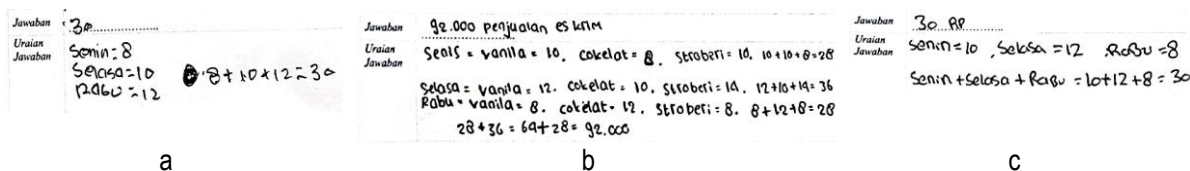 Jawaban 30
Uraian Jawaban
Senin = 8
Selasa = 10 8 + 10 + 12 = 30
Rabu = 12
a
Jawaban 92.000 penjualan es krim
Uraian Jawaban
= vanila = 10. cokelat = 8. stroberi = 10. 10+10+8=28
Selasa = vanila = 12. cokelat = 10. stroberi = 14. 12+10+14= 36
Rabu = vanila = 8. cokelat = 12. stroberi = 8. 8+12+8= 28
28+36 = 64+28= 92.000
b
Jawaban 30 RP
Uraian Jawaban
Senin = 10 , Selasa = 12 RaBu = 8
Senin + Selasa + RaBu = 10+12+8 = 30
c